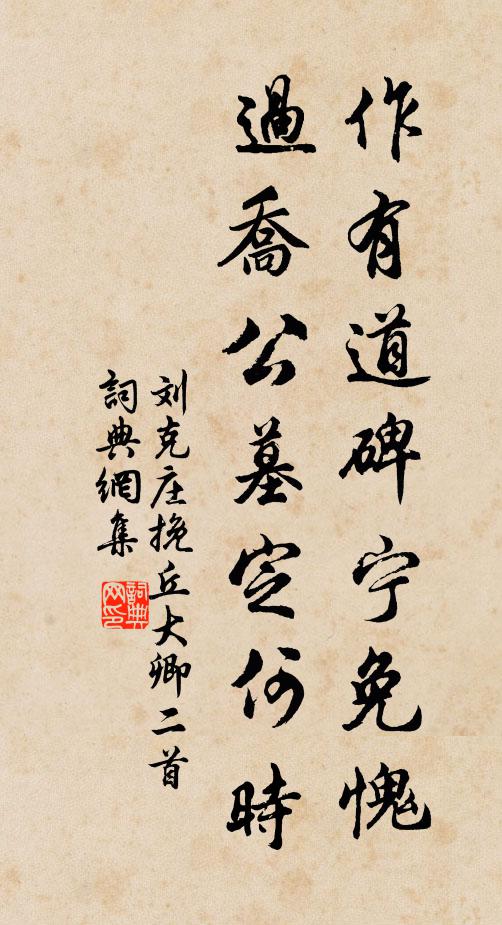 作有道碑宁免愧
過喬公墓定何時
刘克庄挽丘大卿二首
詞典網集
詞典网印